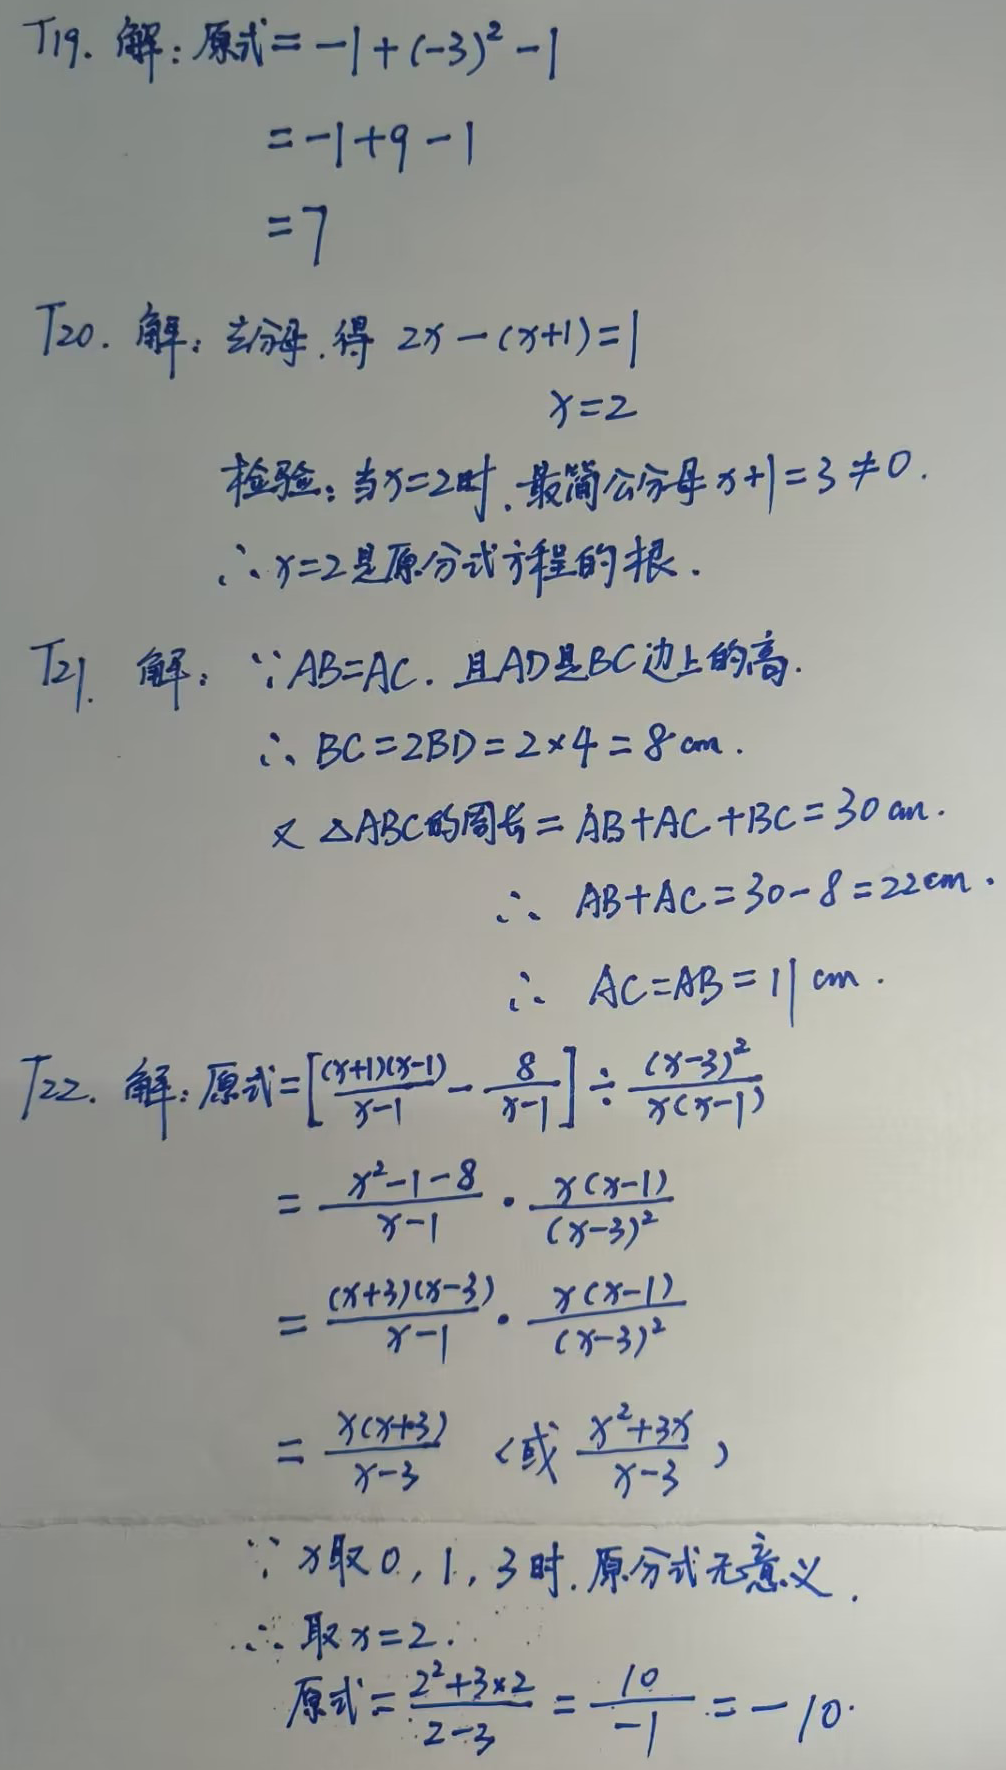 T19. 解:原式=-1+(-3)²-1
=-1+9-1
=7
T20. 解:去分母,得 2x-(x+1)=1
x=2
检验:当x=2时,最简公分母x+1=3≠0.
∴x=2是原分式方程的根.
T21. 解:∵AB=AC,且AD是BC边上的高.
∴BC=2BD=2×4=8cm.
又△ABC的周长=AB+AC+BC=30cm.
∴ AB+AC=30-8=22cm.
∴ AC=AB=11cm.
T22. 解:原式=[(x+1)(x-1)/(x-1) - 8/(x-1)]÷(x-3)²/x(x-1)
= (x²-1-8)/(x-1) · x(x-1)/(x-3)²
= (x+3)(x-3)/(x-1) · x(x-1)/(x-3)²
= x(x+3)/(x-3) (或 (x²+3x)/(x-3))
∵x取0,1,3时,原分式无意义.
∴取x=2.
原式=(2²+3×2)/(2-3)=10/-1=-10.